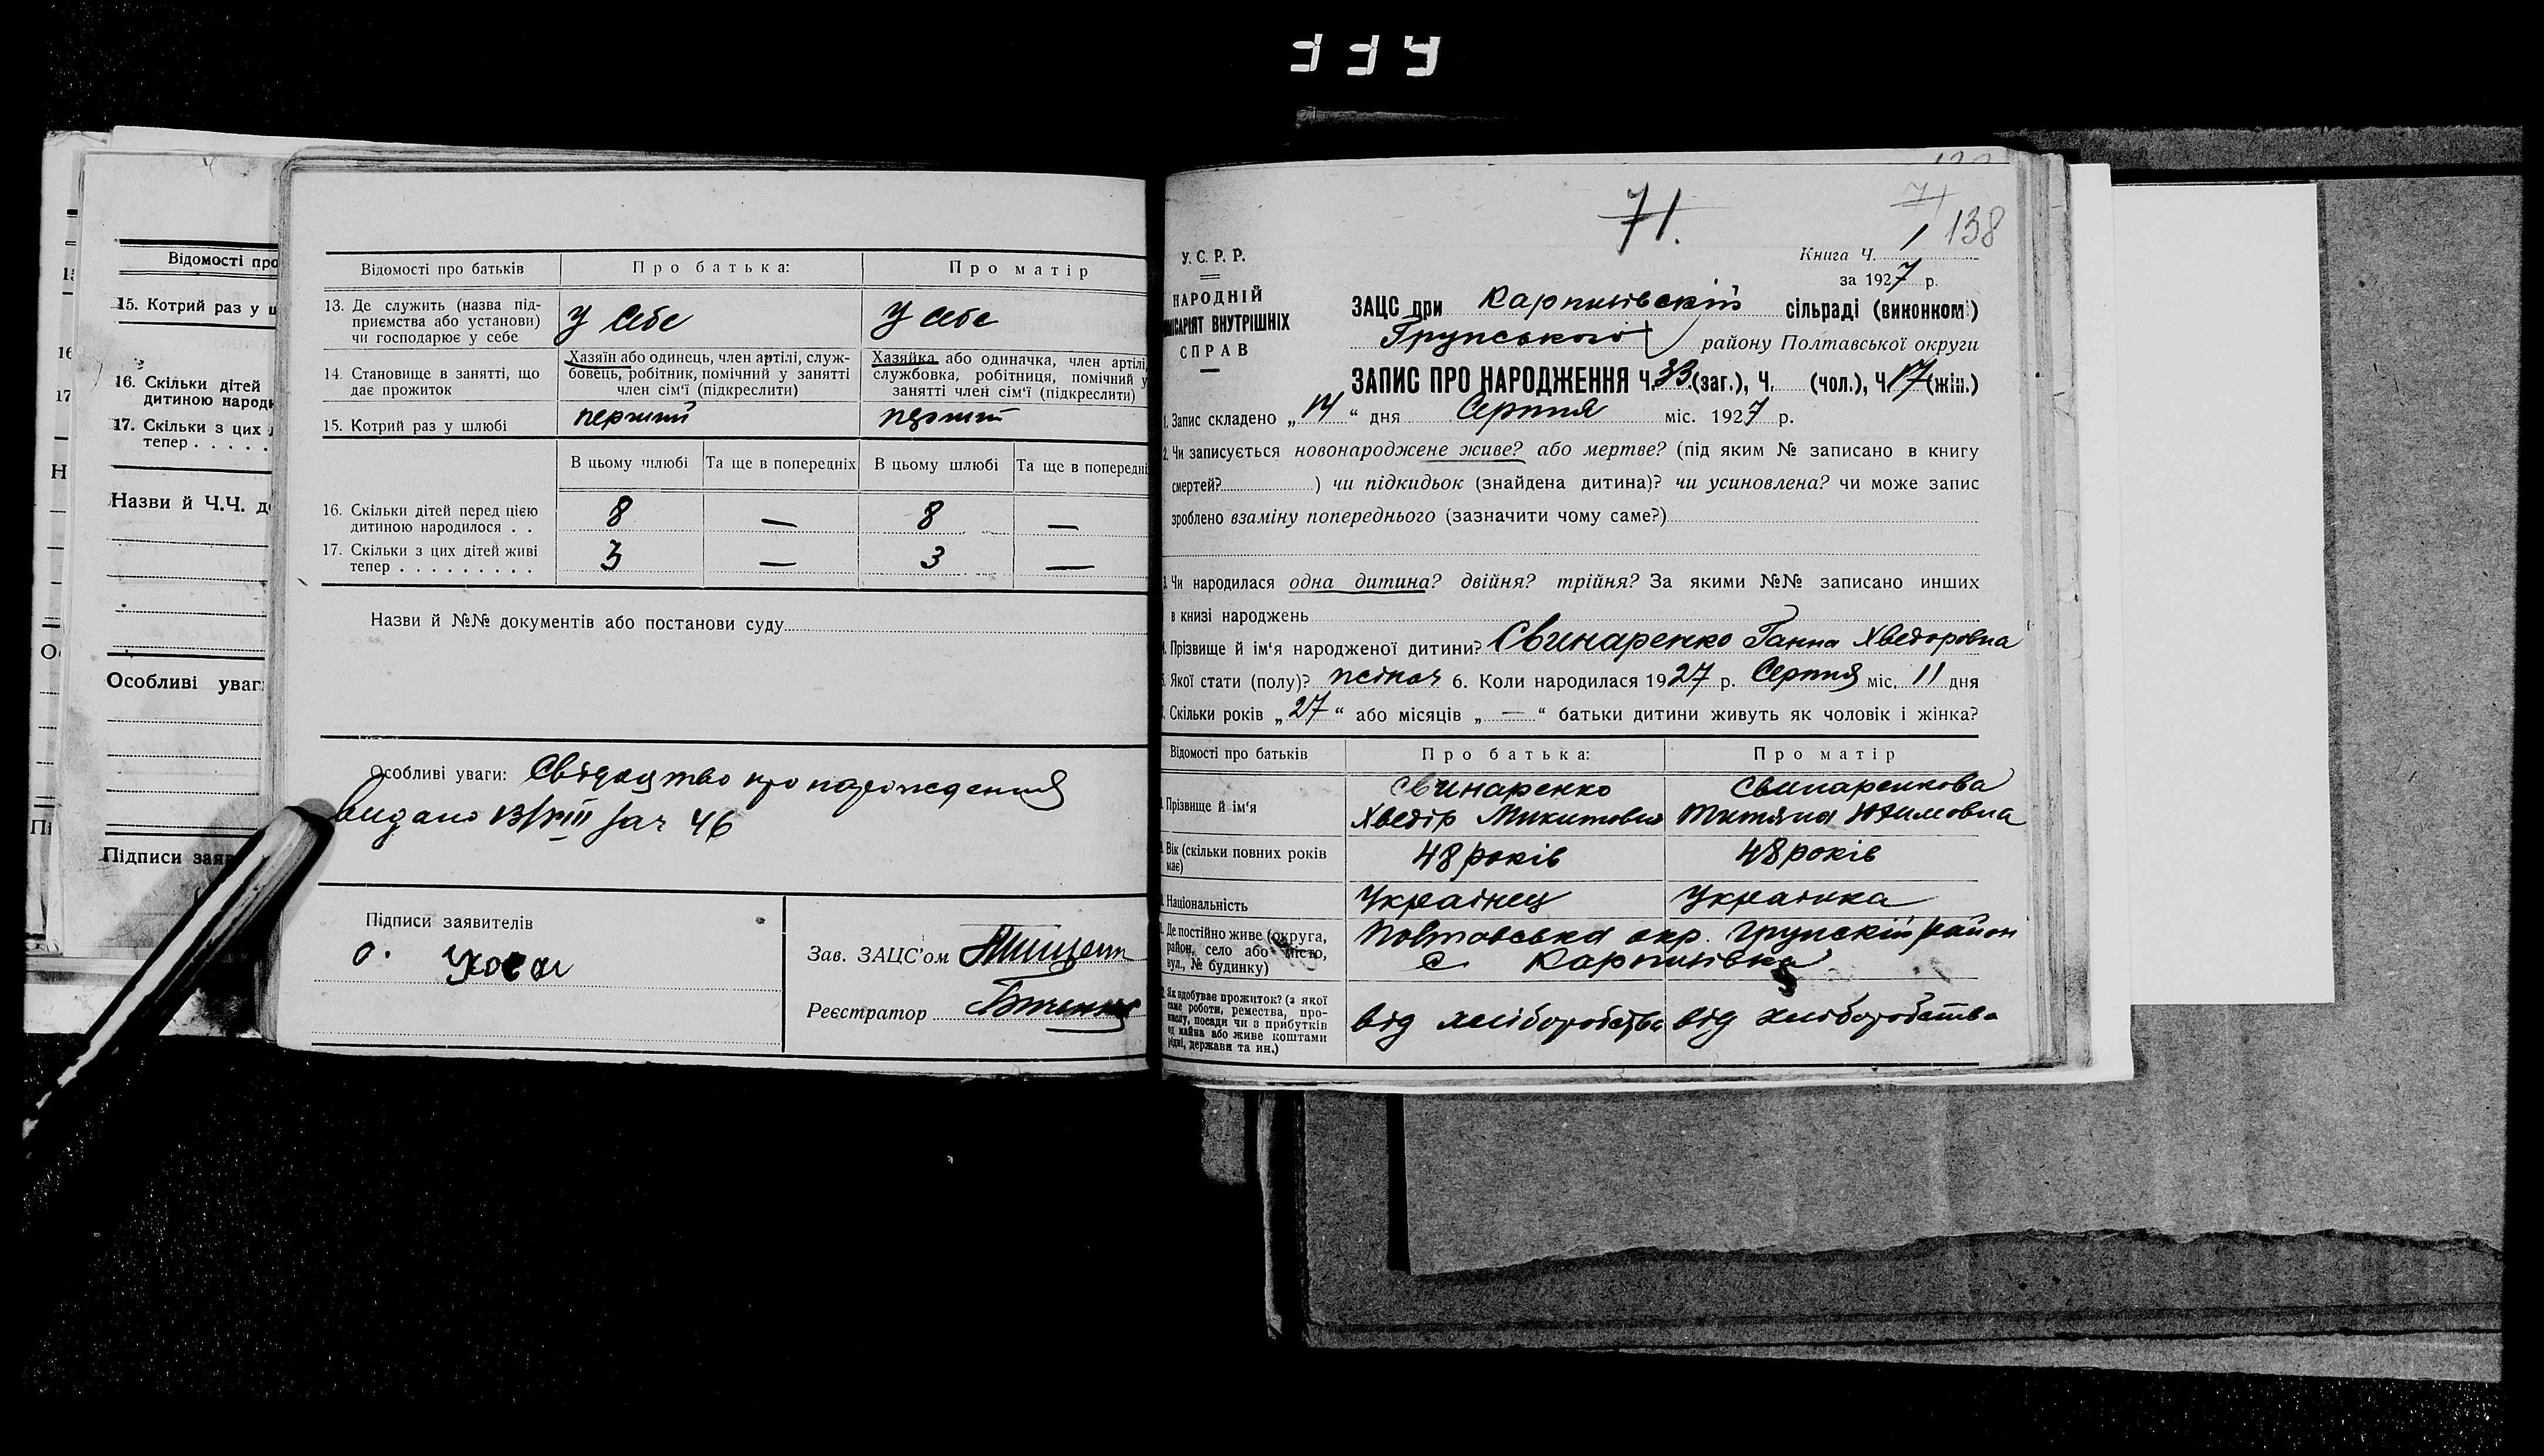 Відомості про
15. Котрий раз у ш
16. Скільки дітей
дитиною народи
17. Скільки з цих
тепер . . . . .
Назви й Ч.Ч. д
Особливі уваг
Підписи заяв
Відомості про батьків Про батька: Про матір
13. Де служить (назва під-
приємства або установи)
чи господарює у себе
у себе у себе
14. Становище в занятті, що
дає прожиток
Хазяїн або одинець, член артілі, служ-
бовець, робітник, помічний у занятті
член сім'ї (підкреслити)
Хазяйка або одиначка, член артілі,
службовка, робітниця, помічний у
занятті член сім'ї (підкреслити)
15. Котрий раз у шлюбі перший перший
В цьому шлюбі Та ще в попередніх В цьому шлюбі Та ще в попередні
16. Скільки дітей перед цією
дитиною народилося . . 8 — 8 —
17. Скільки з цих дітей живі
тепер . . . . . . . . . 3 — 3 —
Назви й №№ документів або постанови суду
Особливі уваги: Свідоцтво про народження
видано 13/VIII за ч 46
Підписи заявителів
Зав. ЗАЦС'ом
Реєстратор
71.
71
138
У.С.Р.Р.
НАРОДНІЙ
МІСАРІЯТ ВНУТРІШНІХ
СПРАВ
Книга Ч. 1
за 1927 р.
ЗАЦС при Карпинівскій сільраді (виконком)
Грунського району Полтавської округи
ЗАПИС ПРО НАРОДЖЕННЯ Ч. 33 (заг.), Ч. (чол.), Ч. 17 (жін.)
1. Запис складено „ “ дня Серпня міс. 1927 р.
2. Чи записується новонароджене живе? або мертве? (під яким № записано в книгу
смертей? ) чи підкидьок (знайдена дитина)? чи усиновлена? чи може запис
зроблено взаміну попереднього (зазначити чому саме?)
3. Чи народилася одна дитина? двійня? трійня? За якими №№ записано инших
в книзі народжень
4. Прізвище й ім'я народженої дитини? Свинаренко Ганна Хведоровна
5. Якої стати (полу)? жіноч 6. Коли народилася 1927 р. Серпня міс. 11 дня
Скільки років „27“ або місяців „—“ батьки дитини живуть як чоловік і жінка?
Відомості про батьків Про батька: Про матір
Прізвище й ім'я
Свинаренко
Хведір Микитович
Свинаренкова
Титяна Юхимовна
Вік (скільки повних років
має)
48 років 48 років
Національність Українец Українка
Де постійно живе (округа,
район, село або місто,
вул., № будинку)
Полтавська окр. Грунскій район
с Карпинівка
Як здобуває прожиток? (з якої
саме роботи, ремества, про-
мислу, посади чи з прибутків
од майна або живе коштами
рідні, держави та ин.)
від хліборобства від хліборобства